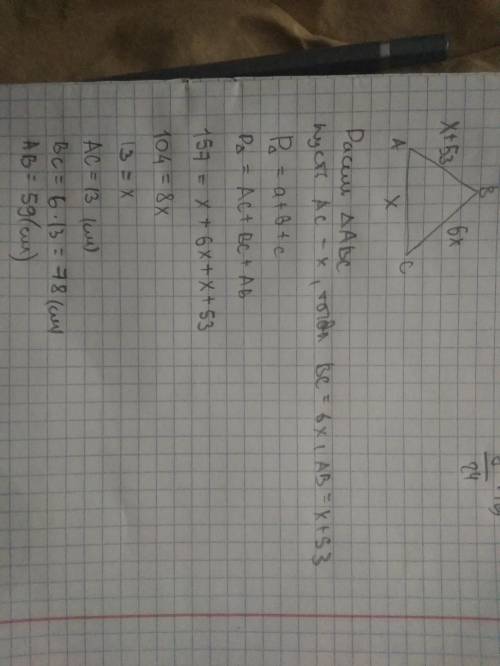 B
x+53
6x
A
x
C
Рассм ΔABC
пусть AC = x, тогда BC = 6x, AB = x+53
P∆ = a+b+c
P∆ = AC+BC+AB
157 = x+6x+x+53
104 = 8x
13 = x
AC = 13 (см)
BC = 6·13 = 78 (см)
AB = 59 (см)
24